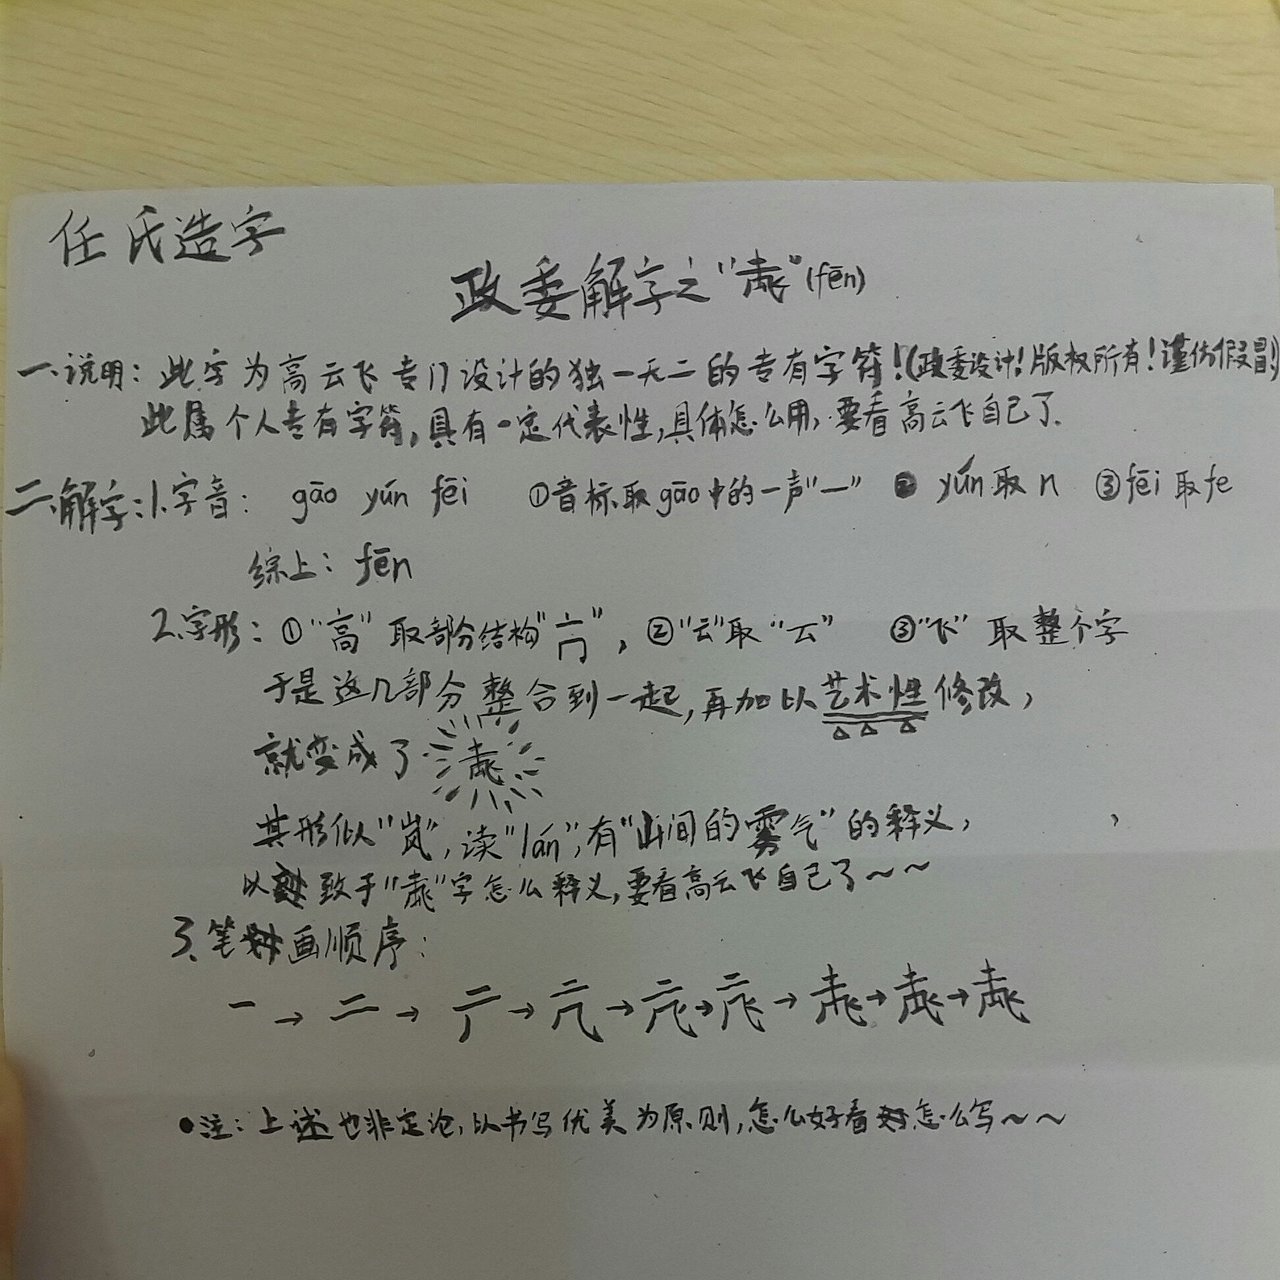 任氏造字
政委解字之“”(fēn)
一、说明：此字为高云飞专门设计的独一无二的专有字符！(政委设计！版权所有！谨仿假冒)
此属个人专有字符，具有一定代表性，具体怎么用，要看高云飞自己了.
二、解字：1.字音： gāo yún fēi ①音标取gāo中的一声“一” ② yún取n ③fēi取fe
综上：fēn
2.字形：①“高”取部分结构“”，②“云”取“云” ③“飞”取整个字
于是这几部分整合到一起，再加以艺术性修改，
就变成了
其形似“岚”，读“lán”，有“山间的雾气”的释义，
以致于“”字怎么释义，要看高云飞自己了～～
3.笔画顺序：
一→二→→→→→→→
●注：上述也非定论，以书写优美为原则，怎么好看怎么写～～